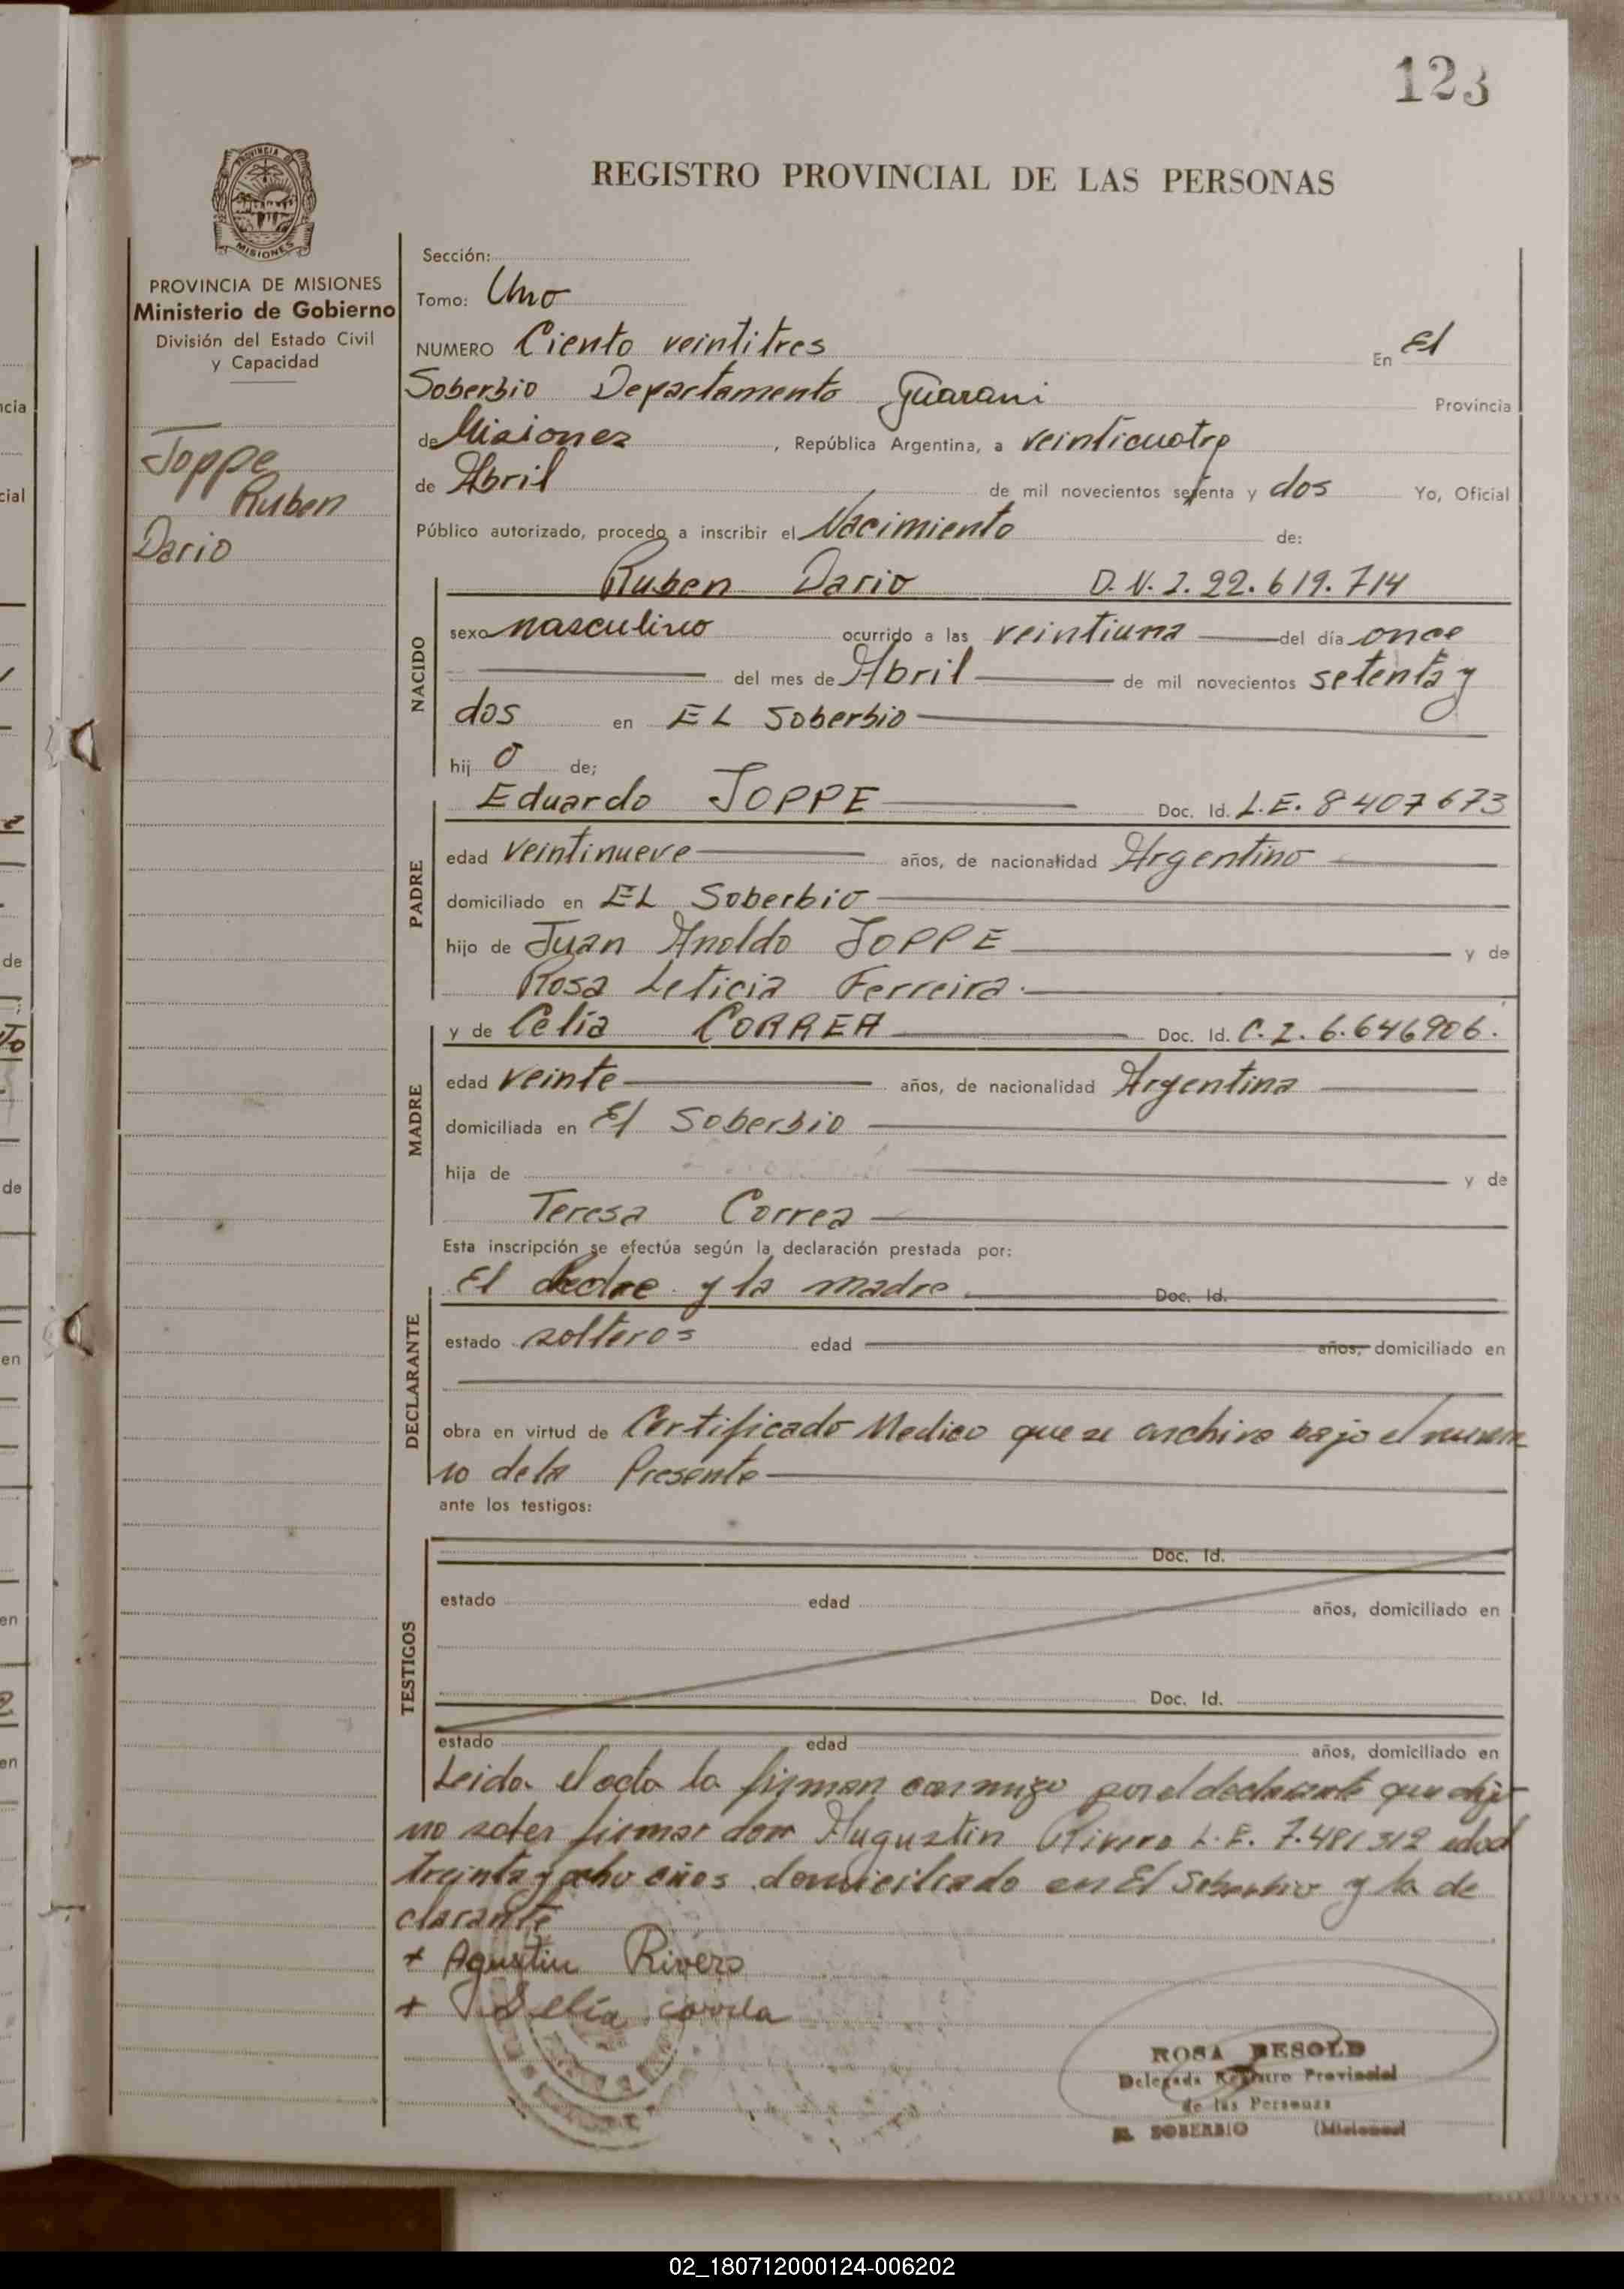 123
REGISTRO PROVINCIAL DE LAS PERSONAS
PROVINCIA DE MISIONES
Ministerio de Gobierno
División del Estado Civil
y Capacidad
Joppe
Ruben
Dario
Sección:
Tomo: Uno
NUMERO Ciento veintitres En El
Soberbio Departamento Guarani Provincia
de Misiones, República Argentina, a veinticuatro
de Abril de mil novecientos setenta y dos Yo, Oficial
Público autorizado, procedo a inscribir el Nacimiento de:
NACIDO
Ruben Dario D.N.I. 22.619.714
sexo masculino ocurrido a las veintiuna del día once
del mes de Abril de mil novecientos setenta y
dos en EL Soberbio
hij o de;
PADRE
Eduardo JOPPE Doc. Id. L.E. 8407673
edad veintinueve años, de nacionalidad Argentino
domiciliado en EL Soberbio
hijo de Juan Anoldo JOPPE y de
Rosa Leticia Ferreira.
MADRE
y de Celia CORREA Doc. Id. C.I. 6.646906.
edad veinte años, de nacionalidad Argentina
domiciliada en El Soberbio
hija de y de
Teresa Correa
Esta inscripción se efectúa según la declaración prestada por:
DECLARANTE
El padre y la madre Doc. Id.
estado solteros edad años, domiciliado en
obra en virtud de Certificado Medico que se archiva bajo el nume
ro de la Presente
ante los testigos:
TESTIGOS
Doc. Id.
estado edad años, domiciliado en
Doc. Id.
estado edad años, domiciliado en
Leida el acta la firman conmigo por el declarante que dijo
no saber firmar don Augustin Rivero L.E. 7.481312 edad
treinta y ocho años domiciliado en El Soberbio y la de
clarante
+ Agustin Rivero
+ Selia correa
ROSA BESOLD
Delegada Registro Provincial
de las Personas
EL SOBERBIO (Misiones)
02_180712000124-006202